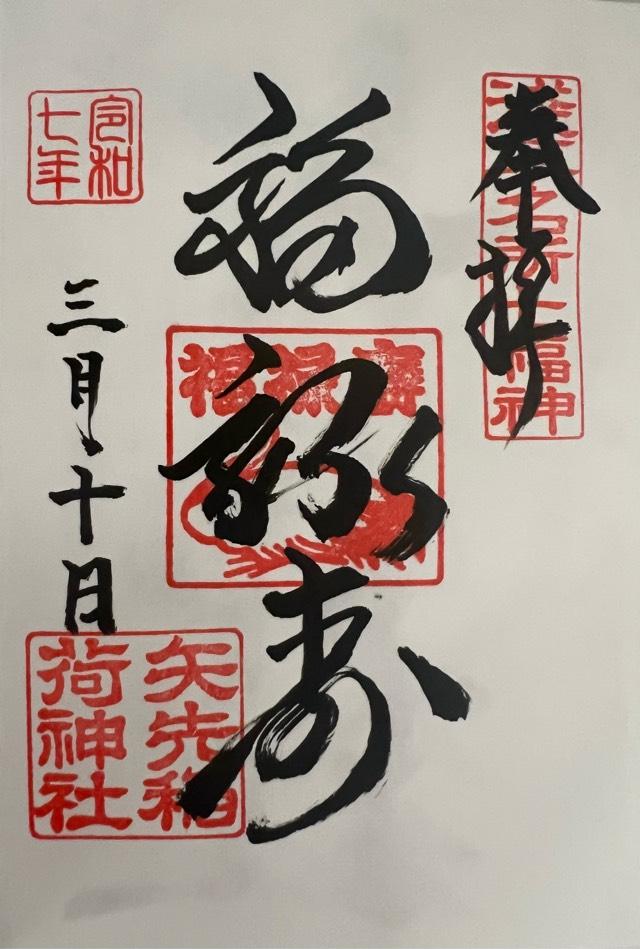 奉拝
浅草名所七福神
福禄寿
福禄寿
令和七年
三月十日
矢先稲荷神社